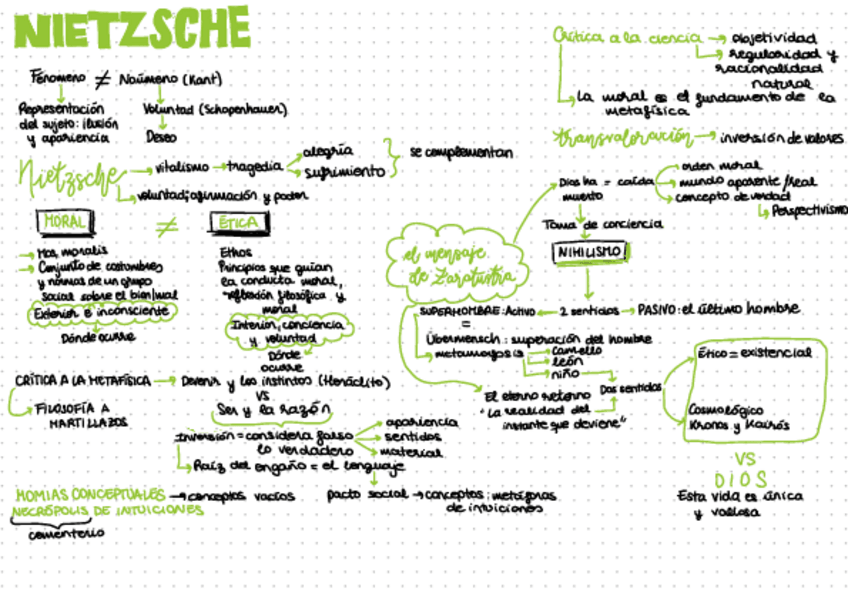 NIETZSCHE
Fenomeno ≠ Noúmeno (Kant)
Representación
del sujeto: ilusión
y apariencia
Voluntad (Schopenhauer)
Deseo
Nietzsche → vitalismo → tragedia
alegría
sufrimiento
se complementan
voluntad; afirmación y poder
MORAL ≠ ÉTICA
→ Mos, moralis
→ Conjunto de costumbres
y normas de un grupo
social sobre el bien/mal
Exterior e inconsciente
Dónde ocurre
Ethos
Principios que guían
la conducta moral,
reflexión filosófica y
moral
Interior, conciencia
y voluntad
Dónde
ocurre
CRÍTICA A LA METAFÍSICA → Devenir y los instintos (Heráclito)
FILOSOFÍA A
MARTILLAZOS
VS
Ser y la razón
Inversión = considera falso
lo verdadero
apariencia
sentidos
material
Raíz del engaño = el lenguaje
MOMIAS CONCEPTUALES → conceptos vacíos
NECRÓPOLIS DE INTUICIONES
cementerio
pacto social → conceptos: metáforas
de intuiciones
Crítica a la ciencia → objetividad
regularidad y
racionalidad
natural
La moral es el fundamento de la
metafísica
transvaloración → inversión de valores
Dios ha = caída
muerto
orden moral
mundo aparente/real
concepto de verdad
Perspectivismo
Toma de conciencia
NIHILISMO
el mensaje
de Zaratustra
SUPERHOMBRE: Activo ← 2 sentidos → PASIVO: el último hombre
=
Übermensch: superación del hombre
metamorfosis
camello
león
niño
El eterno retorno
"La realidad del
instante que deviene"
Dos sentidos
Ético = existencial
Cosmológico
Kronos y Kairós
VS
DIOS
Esta vida es única
y valiosa